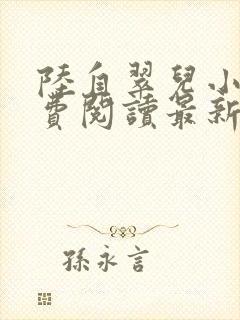 陸自翠兒小
費閱讀最新
孫永言